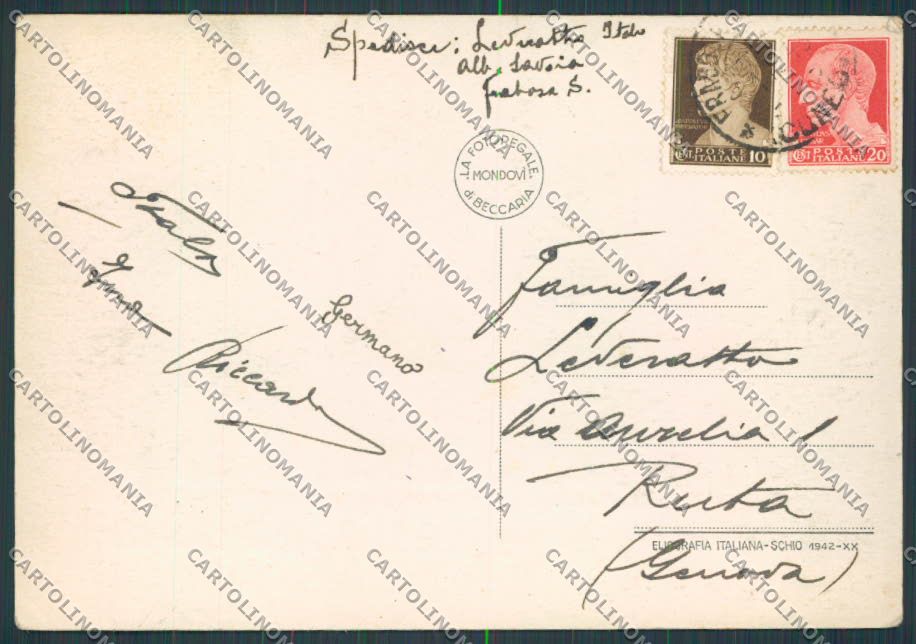 Spedisce: Leveratto Italo
Alb. Savoia
Frabosa S.
LA FOTO REGALE.
MONDOVÌ
di BECCARIA
POSTE
ITALIANE 10
POSTE
ITALIANE 20
Italo
Germano
Riccardo
Famiglia
Leveratto
Via Aurelia 1
Ruta
(Genova)
ELIOGRAFIA ITALIANA-SCHIO 1942-XX
CARTOLINOMANIA